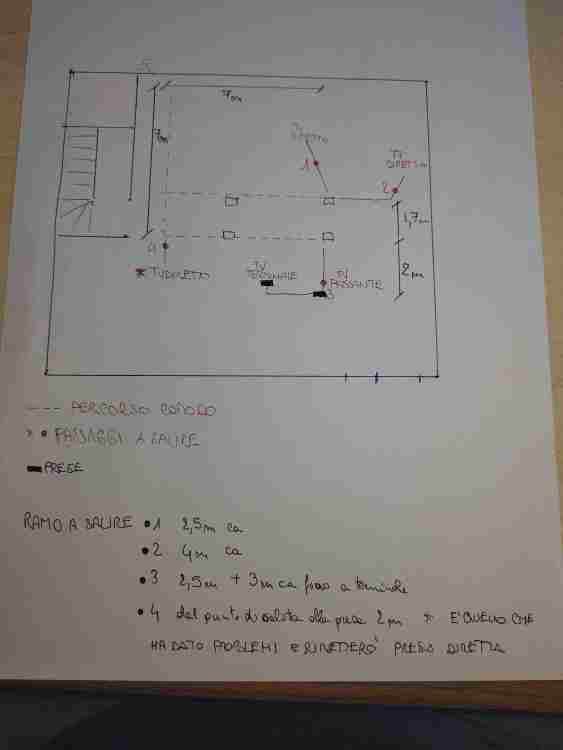 7m
7m
1
TV
DIRETTA
2
1,7m
4
* TV DIRETTO
TV
TERMINALE
TV
PASSANTE
3
2m
--- PERCORSO
PASSAGGI A SALIRE
PRESE
RAMO A SALIRE • 1 2,5m ca
• 2 4m ca
• 3 2,5m + 3m ca fino a terminale
• 4 dal punto di salita alla presa 2m * E' QUELLO CHE
HA DATO PROBLEMI E RIMETTERO' PRESA DIRETTA